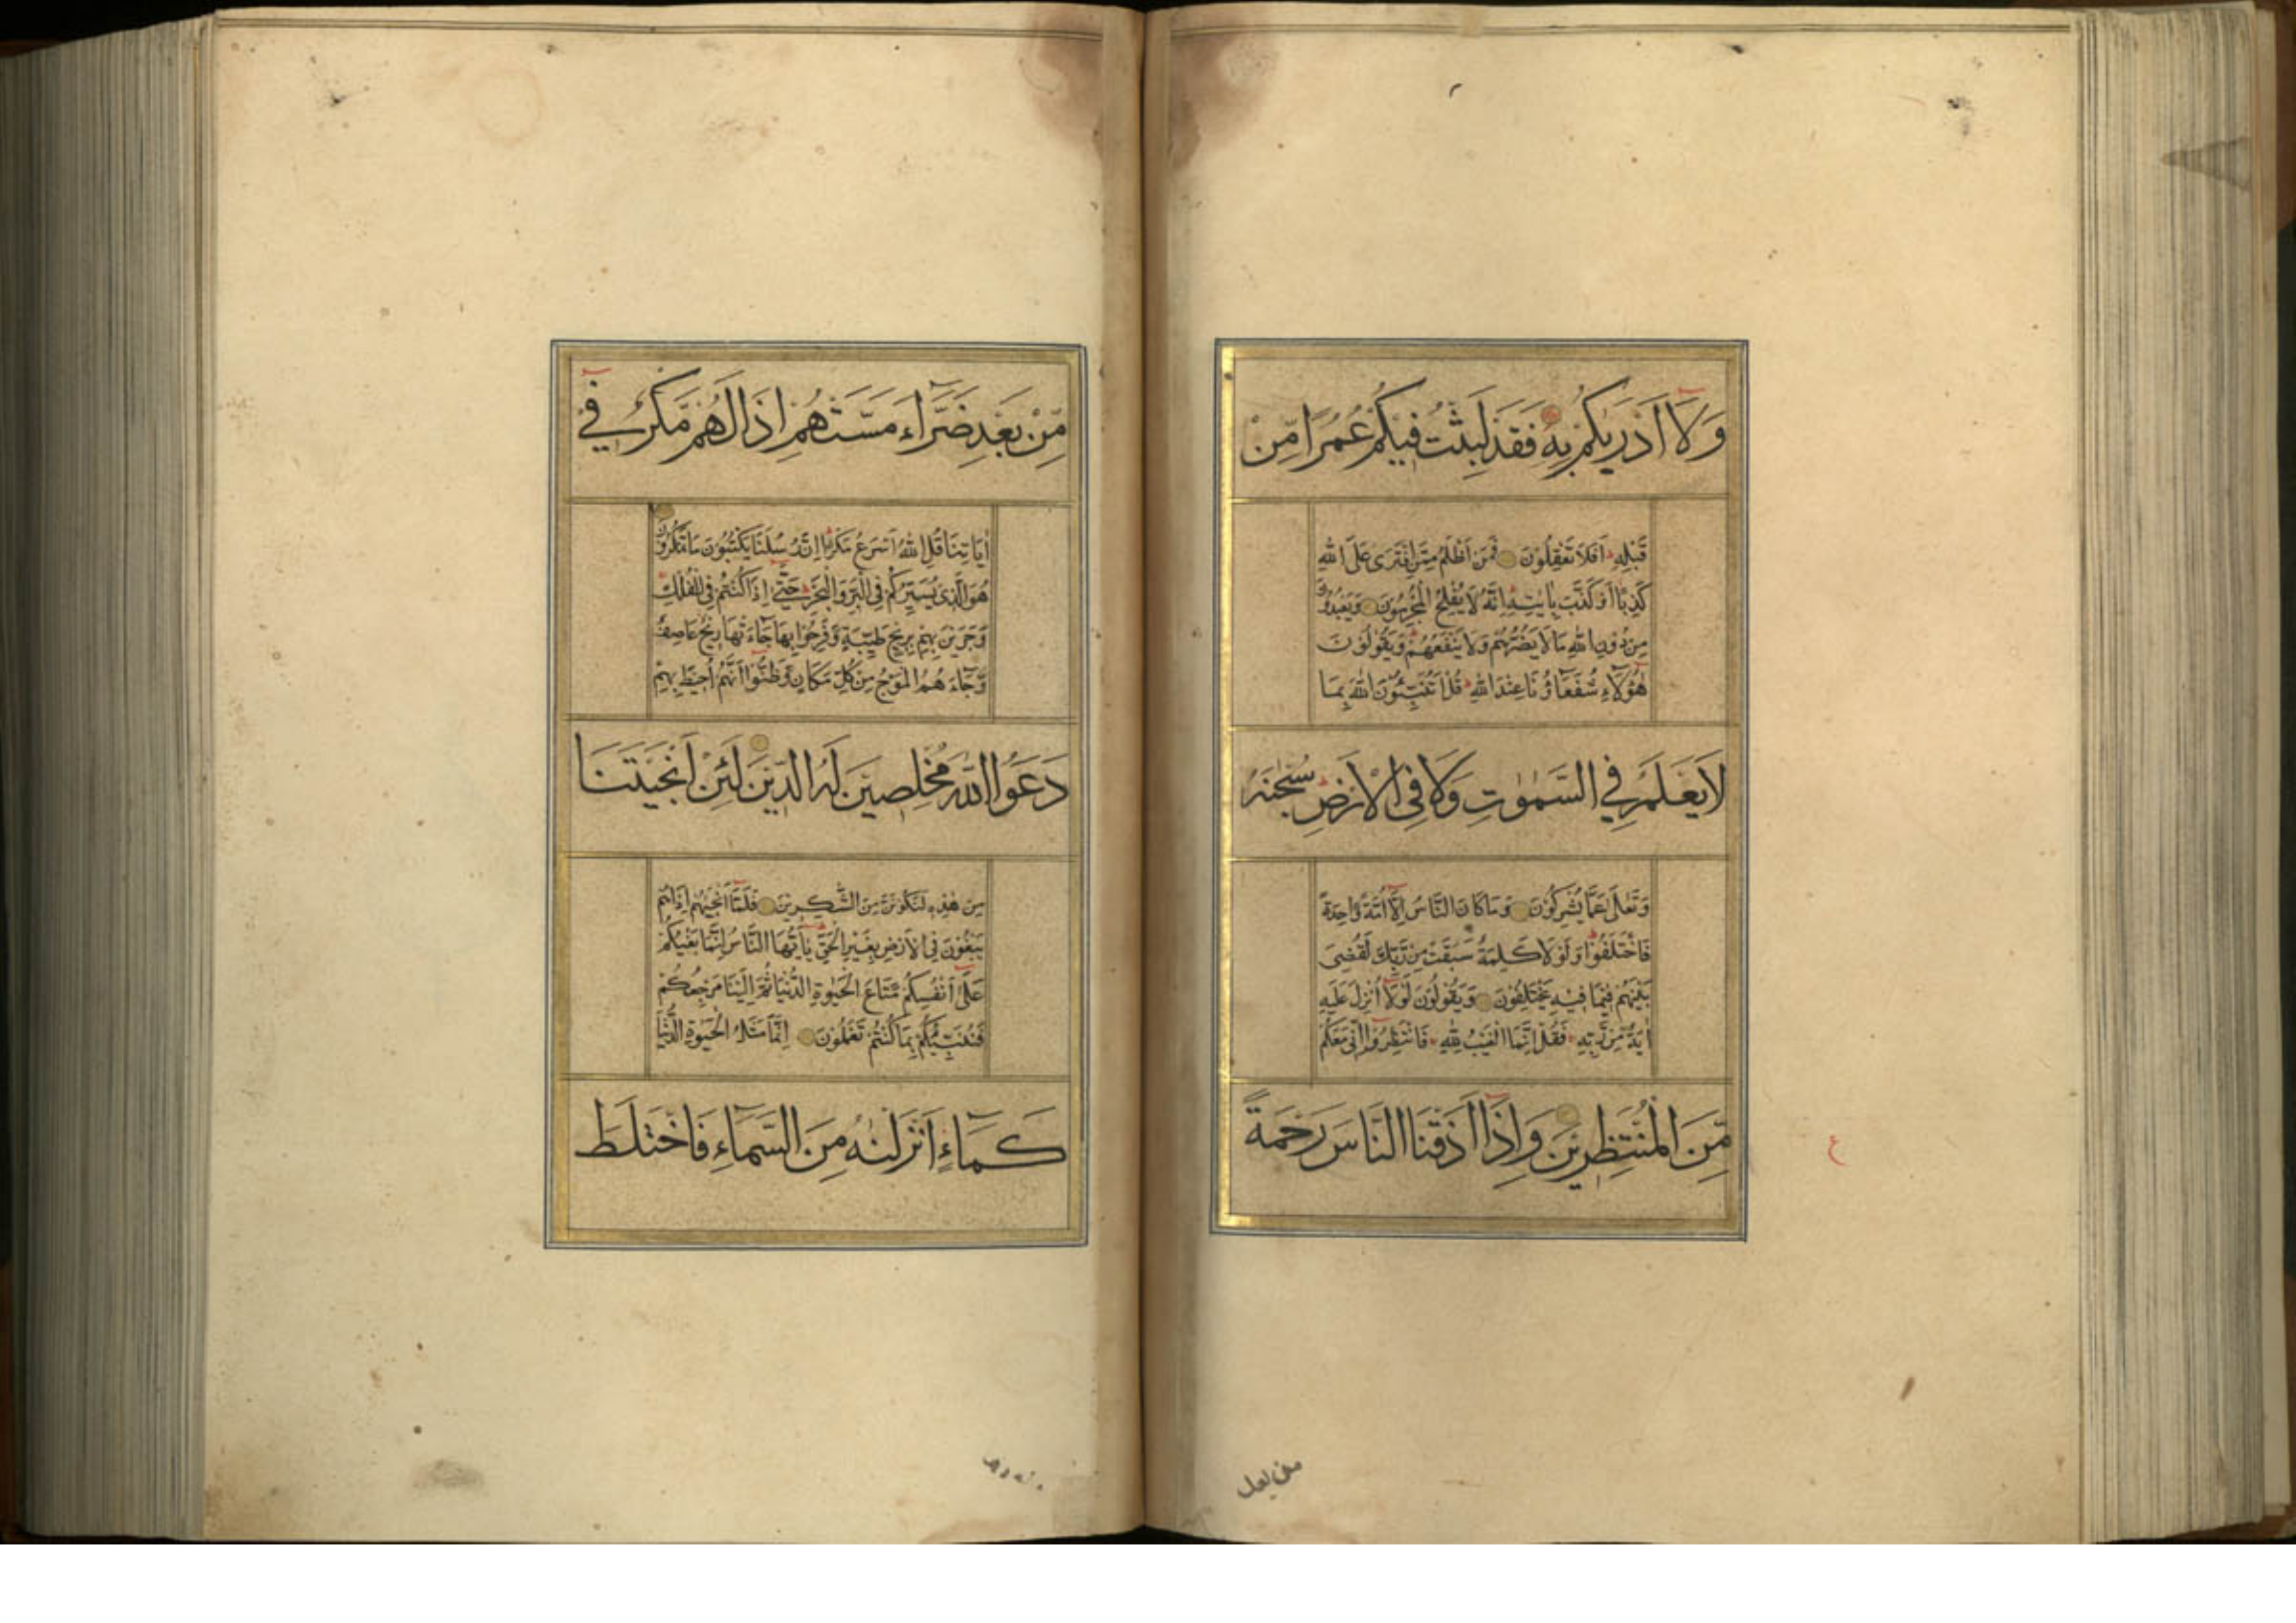 وَلَا اَدْرٰىكُمْ بِهٖ فَقَدْ لَبِثْتُ فِيْكُمْ عُمُرًا مِّنْ
قَبْلِهٖ اَفَلَا تَعْقِلُوْنَ فَمَنْ اَظْلَمُ مِمَّنِ افْتَرٰى عَلَى اللّٰهِ
كَذِبًا اَوْ كَذَّبَ بِاٰيٰتِهٖ اِنَّهٗ لَا يُفْلِحُ الْمُجْرِمُوْنَ وَيَعْبُدُوْنَ
مِنْ دُوْنِ اللّٰهِ مَا لَا يَضُرُّهُمْ وَلَا يَنْفَعُهُمْ وَيَقُوْلُوْنَ
هٰؤُلَاءِ شُفَعَاؤُنَا عِنْدَ اللّٰهِ قُلْ اَتُنَبِّئُوْنَ اللّٰهَ بِمَا
لَا يَعْلَمُ فِي السَّمٰوٰتِ وَلَا فِي الْاَرْضِ سُبْحٰنَهٗ
وَتَعٰلٰى عَمَّا يُشْرِكُوْنَ وَمَا كَانَ النَّاسُ اِلَّا اُمَّةً وَّاحِدَةً
فَاخْتَلَفُوْا وَلَوْلَا كَلِمَةٌ سَبَقَتْ مِنْ رَّبِّكَ لَقُضِىَ
بَيْنَهُمْ فِيْمَا فِيْهِ يَخْتَلِفُوْنَ وَيَقُوْلُوْنَ لَوْلَا اُنْزِلَ عَلَيْهِ
اٰيَةٌ مِّنْ رَّبِّهٖ فَقُلْ اِنَّمَا الْغَيْبُ لِلّٰهِ فَانْتَظِرُوْا اِنِّى مَعَكُمْ
مِّنَ الْمُنْتَظِرِيْنَ وَاِذَا اَذَقْنَا النَّاسَ رَحْمَةً
ع
مِّنْ بَعْدِ ضَرَّاءَ مَسَّتْهُمْ اِذَا لَهُمْ مَّكْرٌ فِيْ
اٰيَاتِنَا قُلِ اللّٰهُ اَسْرَعُ مَكْرًا اِنَّ رُسُلَنَا يَكْتُبُوْنَ مَا تَمْكُرُوْنَ
هُوَ الَّذِى يُسَيِّرُكُمْ فِى الْبَرِّ وَالْبَحْرِ حَتّٰى اِذَا كُنْتُمْ فِى الْفُلْكِ
وَجَرَيْنَ بِهِمْ بِرِيْحٍ طَيِّبَةٍ وَّفَرِحُوْا بِهَا جَاءَتْهَا رِيْحٌ عَاصِفٌ
وَّجَاءَهُمُ الْمَوْجُ مِنْ كُلِّ مَكَانٍ وَّظَنُّوْا اَنَّهُمْ اُحِيْطَ بِهِمْ
دَعَوُا اللّٰهَ مُخْلِصِيْنَ لَهُ الدِّيْنَ لَئِنْ اَنْجَيْتَنَا
مِنْ هٰذِهٖ لَنَكُوْنَنَّ مِنَ الشّٰكِرِيْنَ فَلَمَّا اَنْجٰىهُمْ اِذَا هُمْ
يَبْغُوْنَ فِى الْاَرْضِ بِغَيْرِ الْحَقِّ يٰاَيُّهَا النَّاسُ اِنَّمَا بَغْيُكُمْ
عَلٰى اَنْفُسِكُمْ مَّتَاعَ الْحَيٰوةِ الدُّنْيَا ثُمَّ اِلَيْنَا مَرْجِعُكُمْ
فَنُنَبِّئُكُمْ بِمَا كُنْتُمْ تَعْمَلُوْنَ اِنَّمَا مَثَلُ الْحَيٰوةِ الدُّنْيَا
كَمَاءٍ اَنْزَلْنٰهُ مِنَ السَّمَاءِ فَاخْتَلَطَ